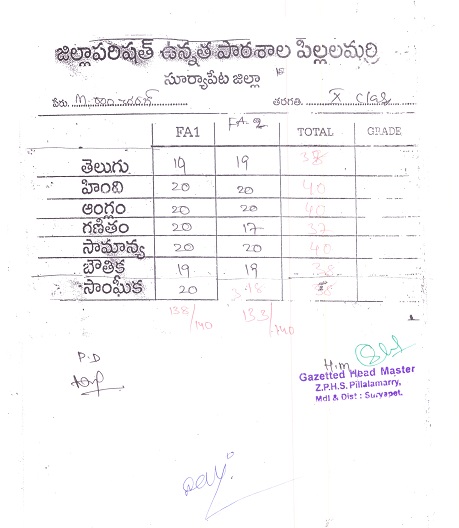 జిల్లాపరిషత్ ఉన్నత పాఠశాల పిల్లలమర్రి
సూర్యాపేట జిల్లా
పేరు. M. తరగతి. X Class
FA1 FA-2 TOTAL GRADE
తెలుగు 19 19 38
హింది 20 20 40
ఆంగ్లం 20 20 40
గణితం 20 17 37
సామాన్య 20 20 40
బౌతిక 19 19 38
సాంఘీక 20 18 38
138/140 133/140
P.D H.M
Gazetted Head Master
Z.P.H.S. Pillalamarry,
Mdl & Dist : Suryapet.